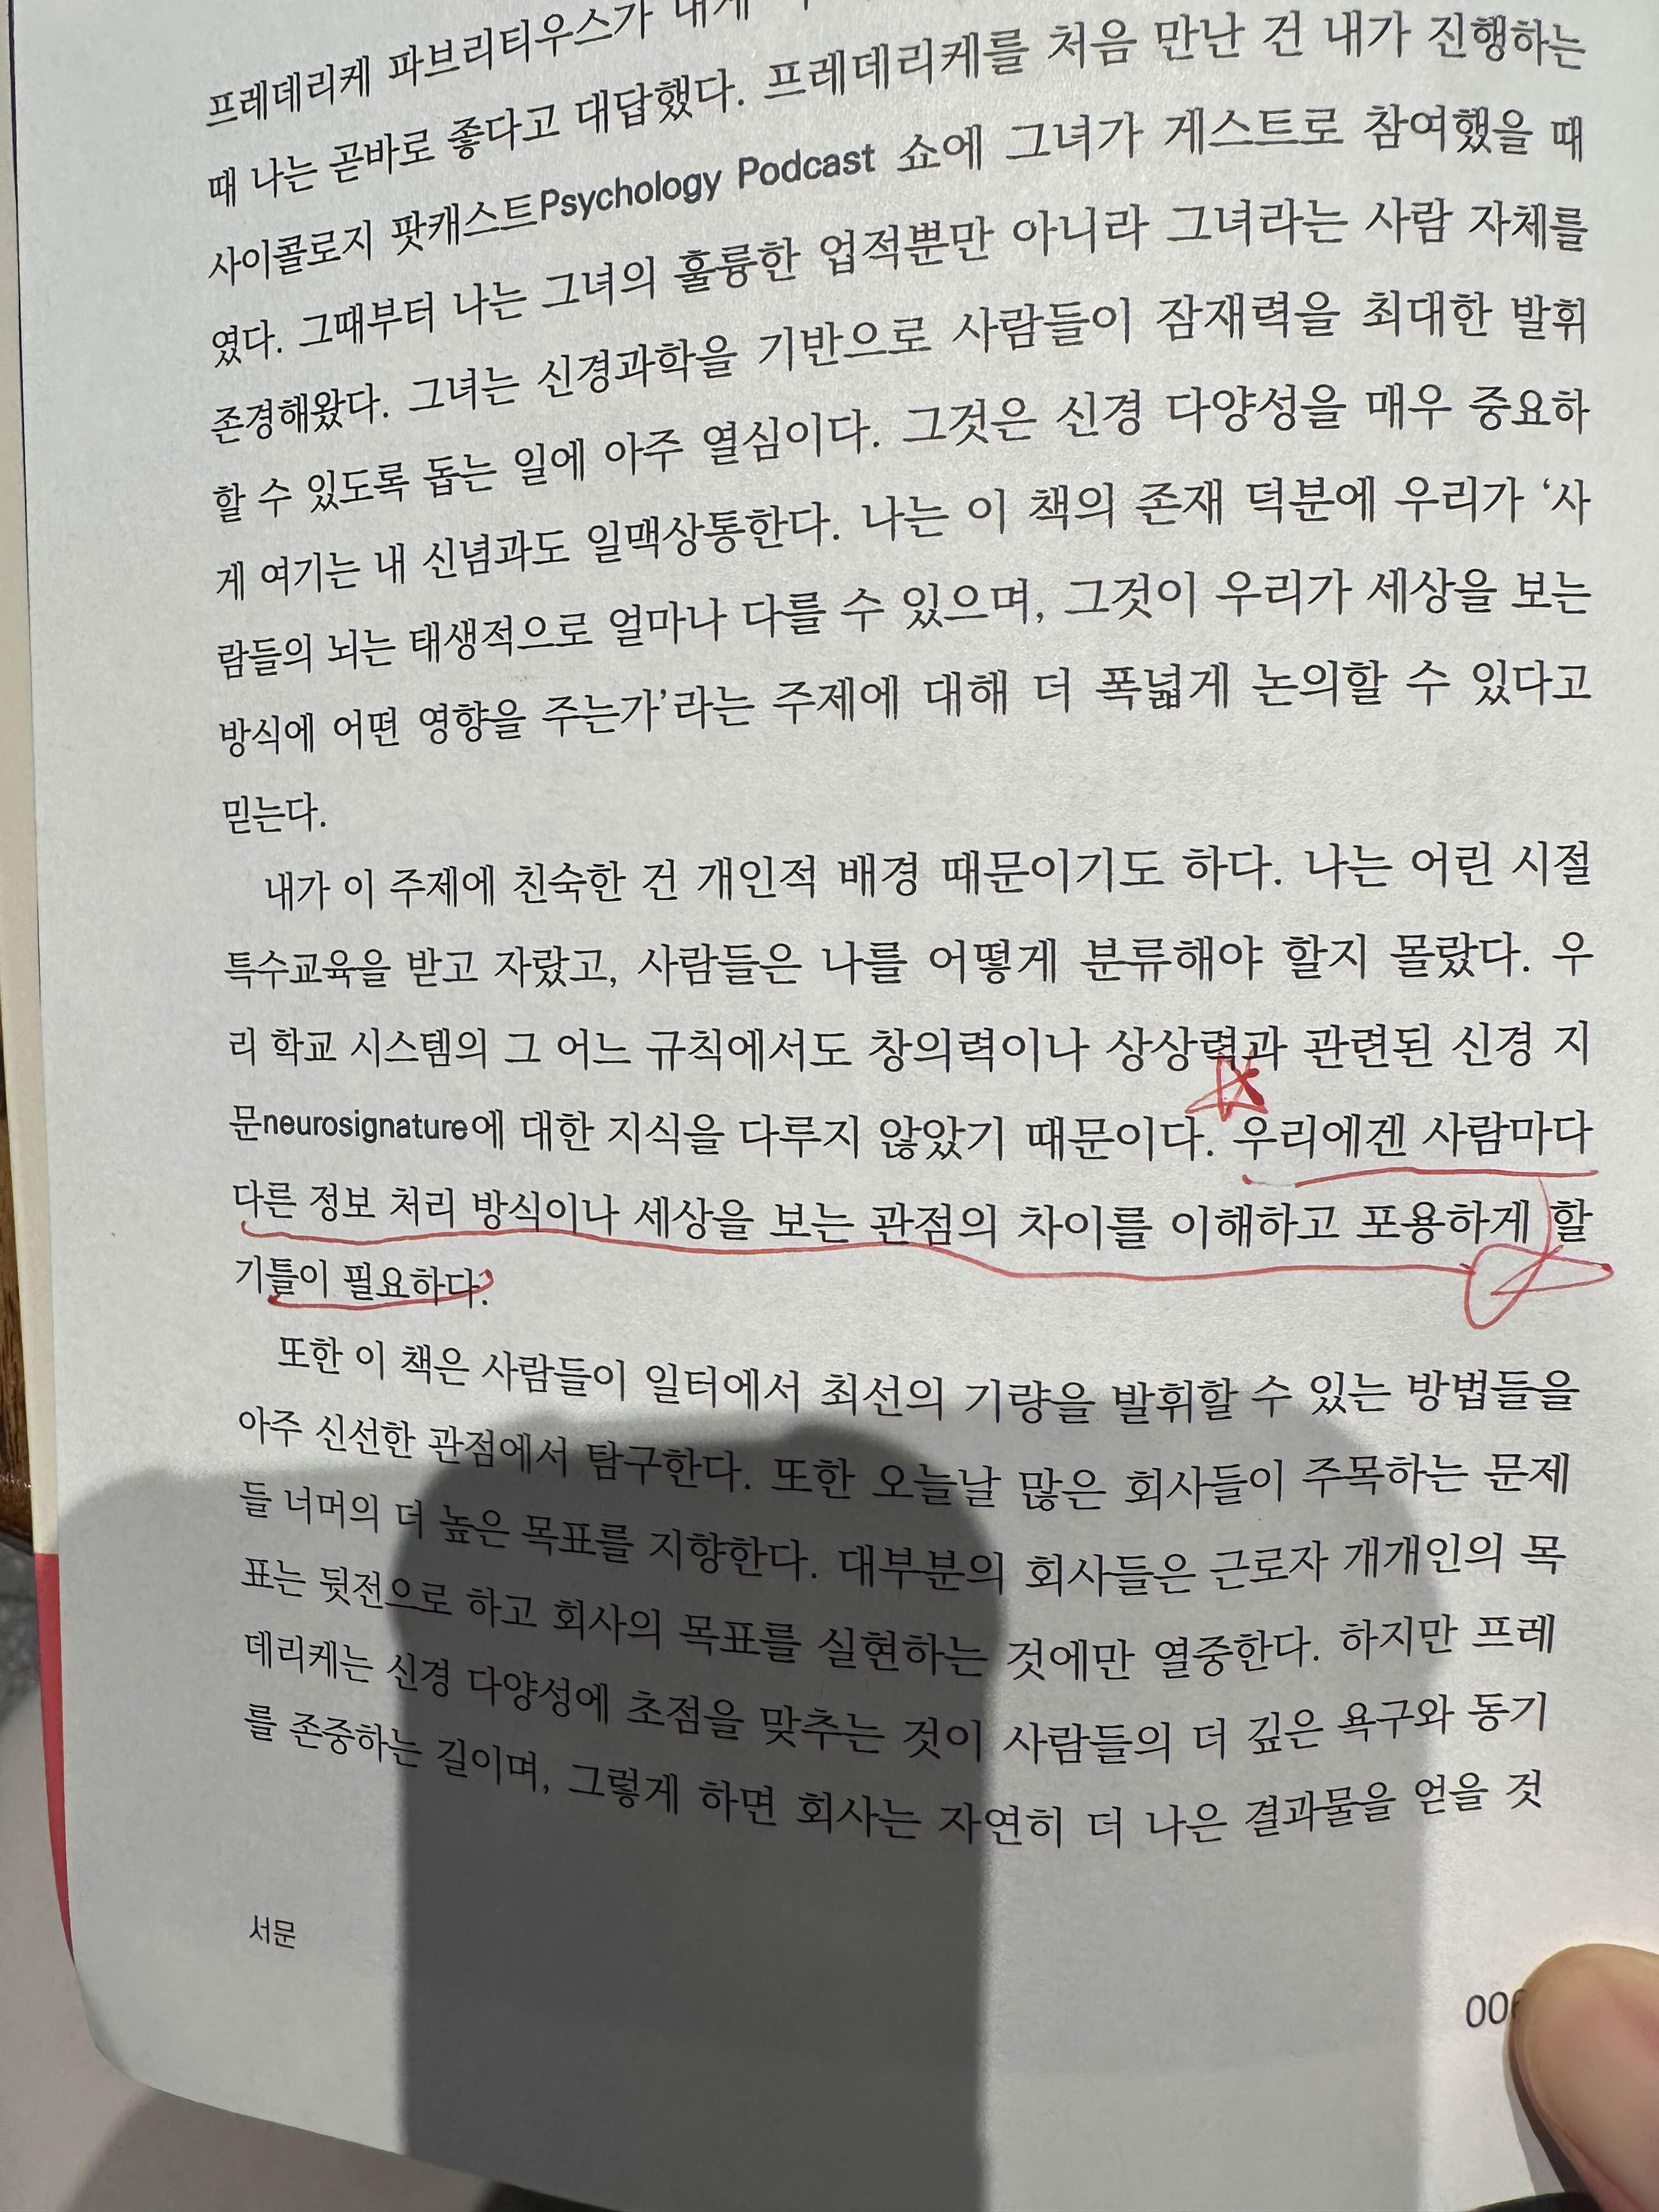 프레데리케 파브리티우스가 내게
때 나는 곧바로 좋다고 대답했다. 프레데리케를 처음 만난 건 내가 진행하는
사이콜로지 팟캐스트Psychology Podcast 쇼에 그녀가 게스트로 참여했을 때
였다. 그때부터 나는 그녀의 훌륭한 업적뿐만 아니라 그녀라는 사람 자체를
존경해왔다. 그녀는 신경과학을 기반으로 사람들이 잠재력을 최대한 발휘
할 수 있도록 돕는 일에 아주 열심이다. 그것은 신경 다양성을 매우 중요하
게 여기는 내 신념과도 일맥상통한다. 나는 이 책의 존재 덕분에 우리가 ‘사
람들의 뇌는 태생적으로 얼마나 다를 수 있으며, 그것이 우리가 세상을 보는
방식에 어떤 영향을 주는가’라는 주제에 대해 더 폭넓게 논의할 수 있다고
믿는다.
내가 이 주제에 친숙한 건 개인적 배경 때문이기도 하다. 나는 어린 시절
특수교육을 받고 자랐고, 사람들은 나를 어떻게 분류해야 할지 몰랐다. 우
리 학교 시스템의 그 어느 규칙에서도 창의력이나 상상력과 관련된 신경 지
문neurosignature에 대한 지식을 다루지 않았기 때문이다. 우리에겐 사람마다
다른 정보 처리 방식이나 세상을 보는 관점의 차이를 이해하고 포용하게 할
기틀이 필요하다.
또한 이 책은 사람들이 일터에서 최선의 기량을 발휘할 수 있는 방법들을
아주 신선한 관점에서 탐구한다. 또한 오늘날 많은 회사들이 주목하는 문제
들 너머의 더 높은 목표를 지향한다. 대부분의 회사들은 근로자 개개인의 목
표는 뒷전으로 하고 회사의 목표를 실현하는 것에만 열중한다. 하지만 프레
데리케는 신경 다양성에 초점을 맞추는 것이 사람들의 더 깊은 욕구와 동기
를 존중하는 길이며, 그렇게 하면 회사는 자연히 더 나은 결과물을 얻을 것
서문